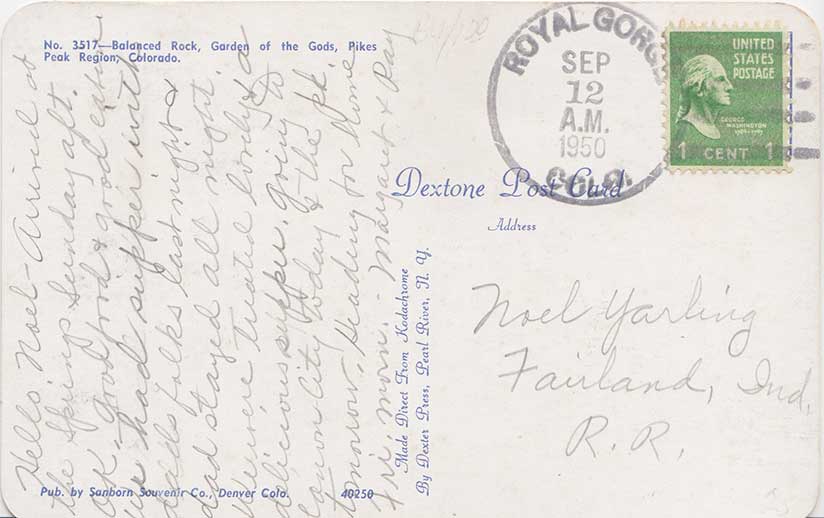 No. 3517—Balanced Rock, Garden of the Gods, Pikes
Peak Region, Colorado.
Hello Noel - Arrived at
the Springs Sunday aft.
O.K. good food & good
we had supper with
folks last night &
dad stayed all night.
We were treated lovely & a
delicious supper. Going to
Canon City today & to the Pk.
tomorrow. Heading for home
Fri. morn. - Margaret & Ray
Pub. by Sanborn Souvenir Co., Denver Colo. 40250
Made Direct From Kodachrome
By Dexter Press, Pearl River, N. Y.
ROYAL GORGE
SEP
12
A.M.
1950
COLO.
UNITED
STATES
POSTAGE
GEORGE
WASHINGTON
1789-1797
1 CENT 1
Dextone Post Card
Address
Noel Yarling
Fairland, Ind.
R. R.